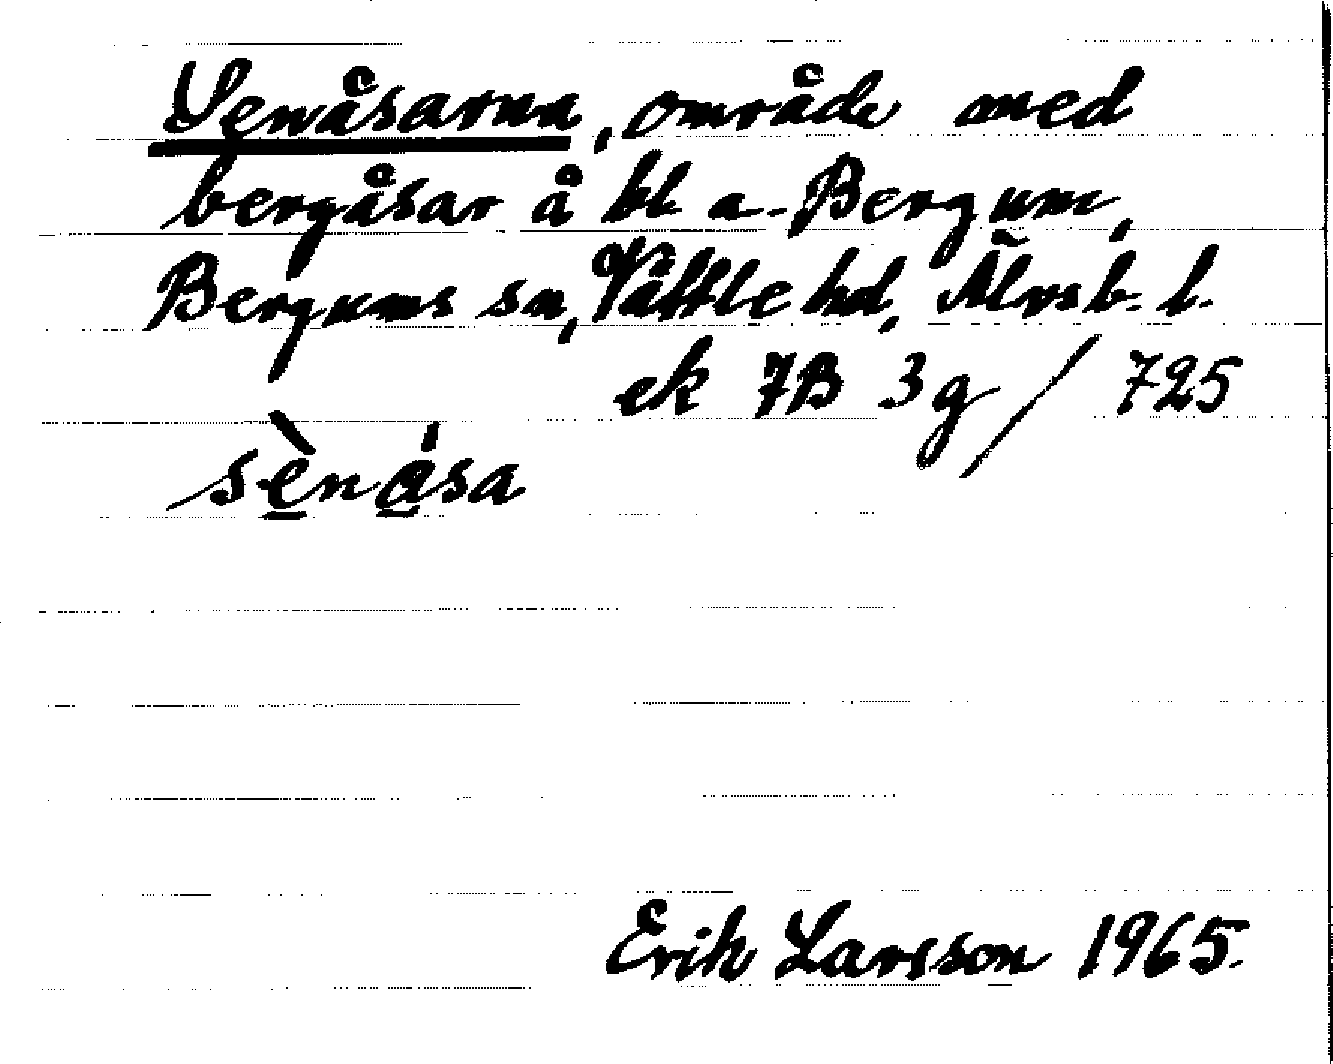 Senåsarna, område med
bergåsar å bl. a. Bergum,
Bergums sn, Vättle hd, Älvsb. l.
ek 7B 3g / 725
sènåsa
Erik Larsson 1965.